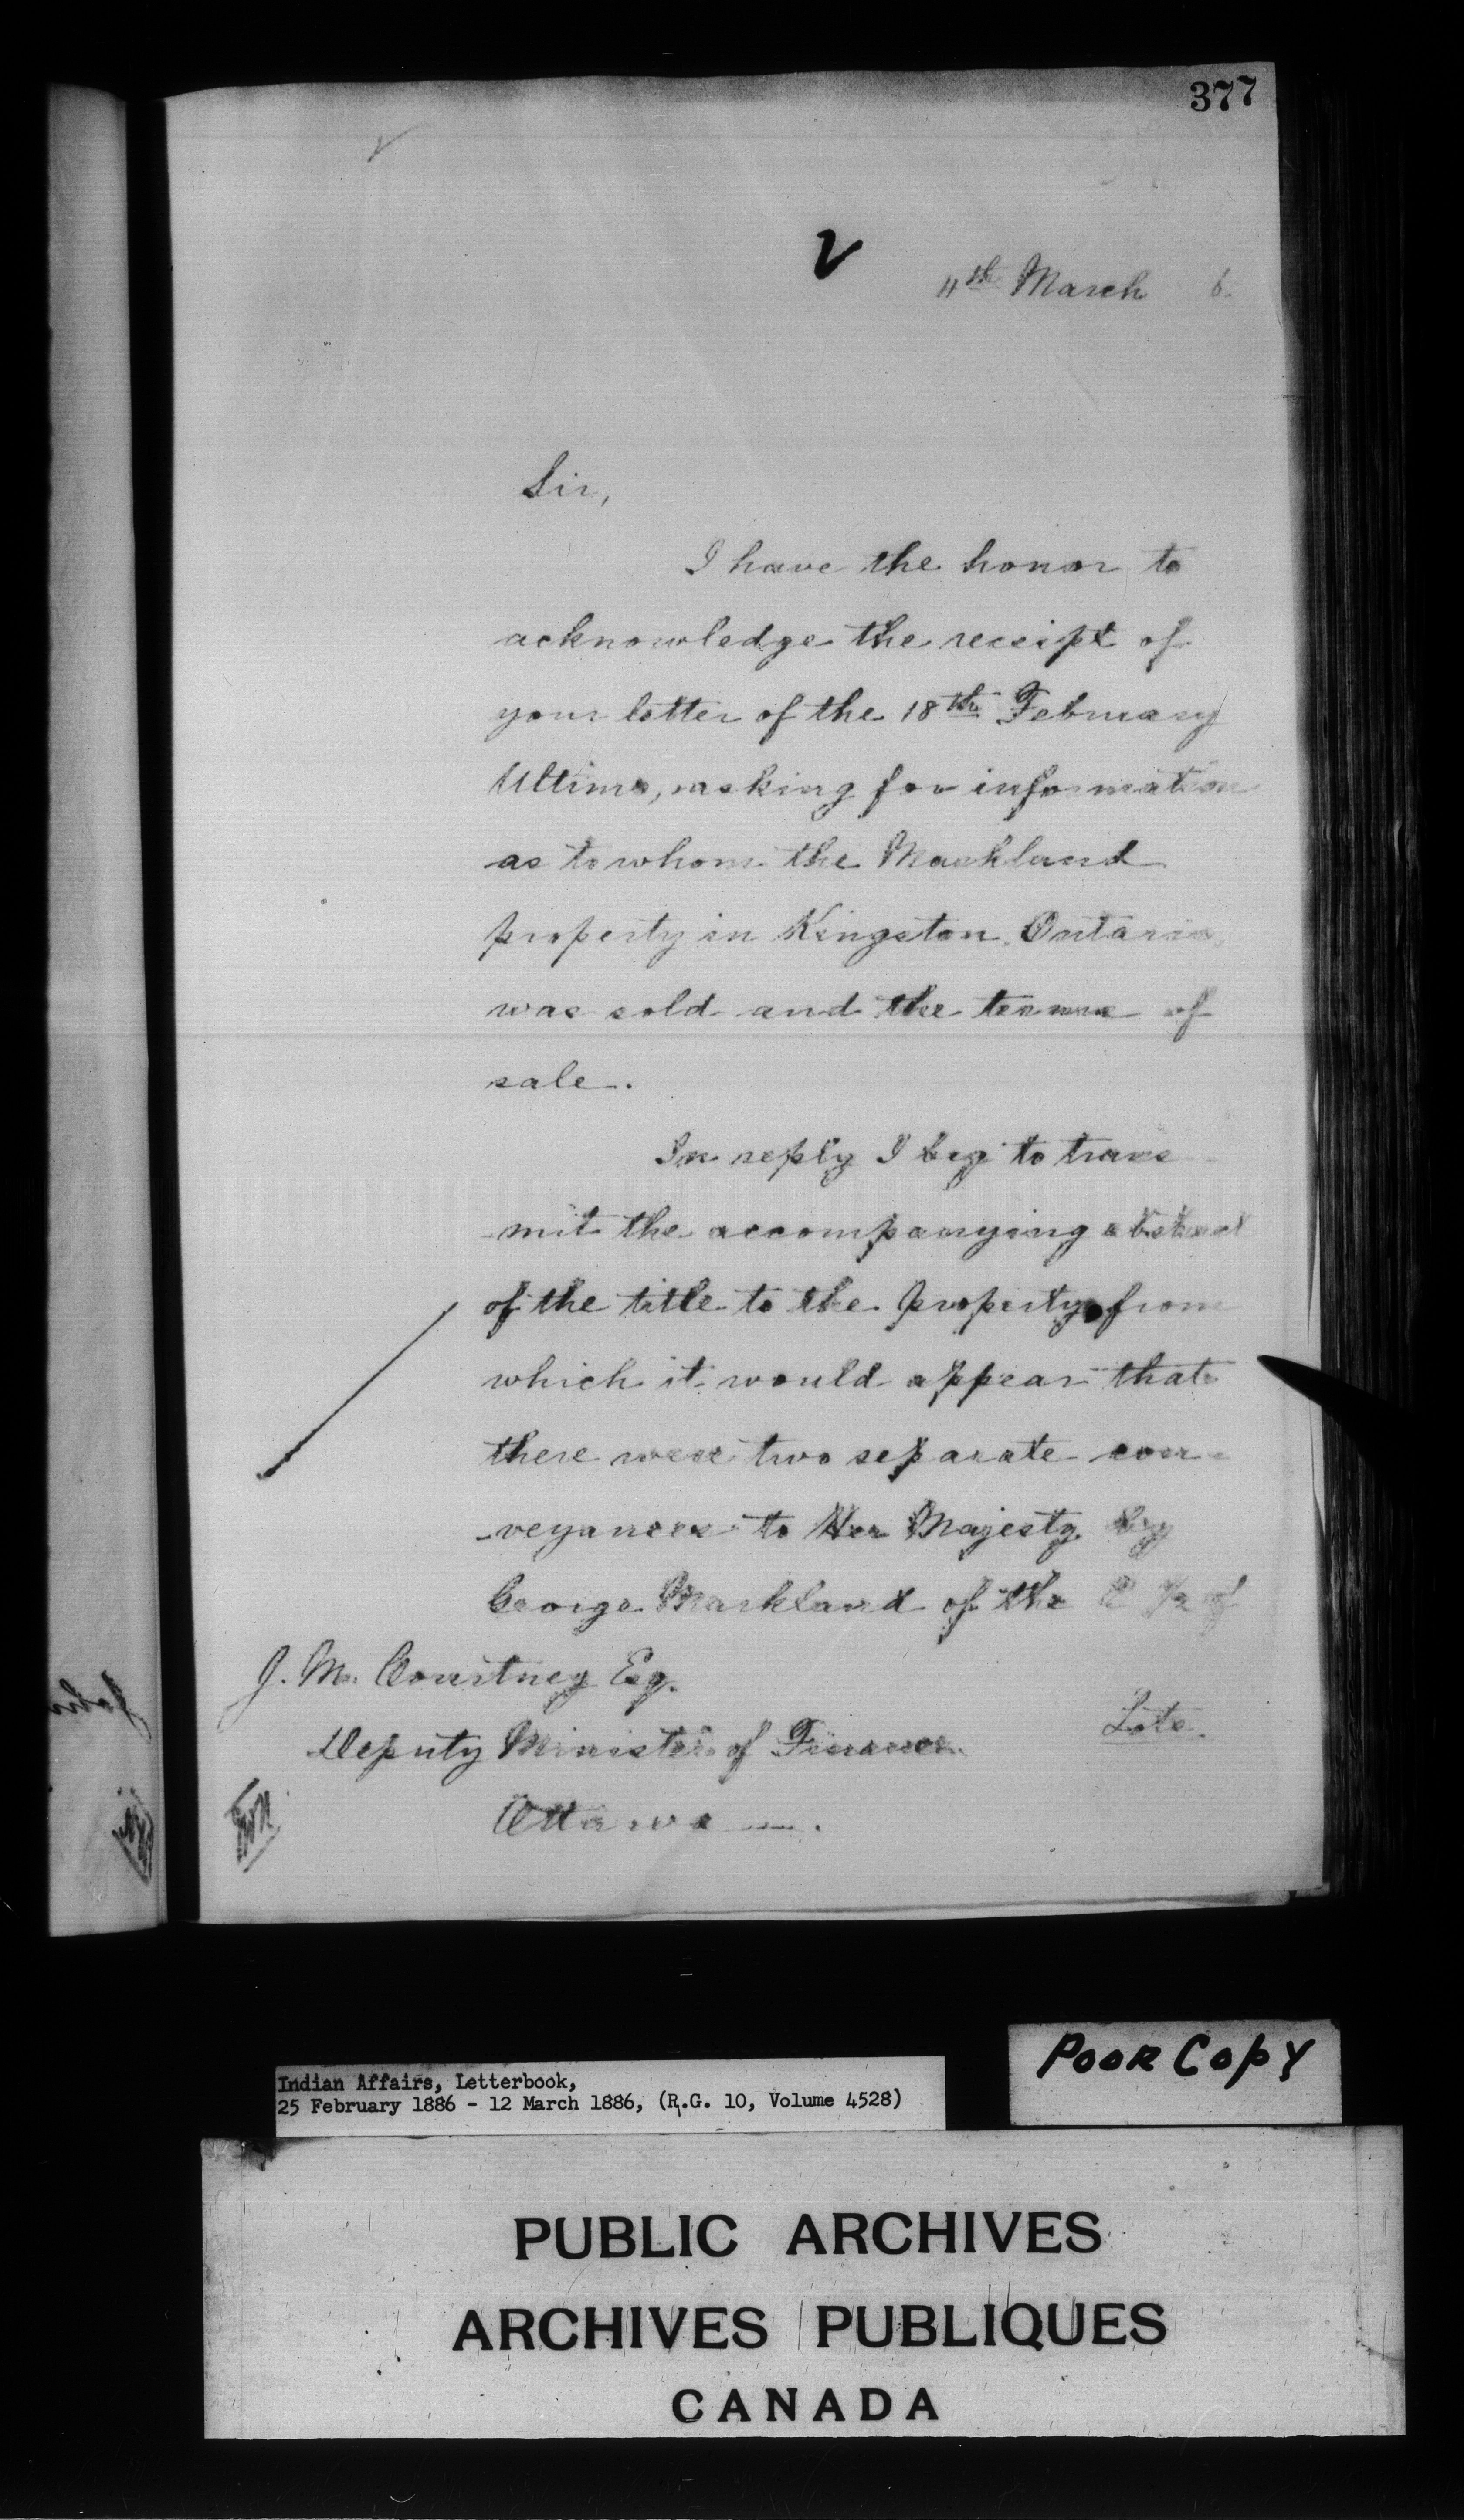 377
11th March 6.
Sir,
I have the honor to
acknowledge the receipt of
your letter of the 18th February
Ultimo, asking for information
as to whom the Markland
property in Kingston, Ontario,
was sold and the terms of
sale.
In reply I beg to trans
-mit the accompanying abstract
of the title to the property from
which it would appear that
there were two separate con-
-veyances to Her Majesty by
George Markland of the ½ of
J. M. Courtney Esq.
Lots
Deputy Minister of Finance
Ottawa
Indian Affairs, Letterbook,
25 February 1886 - 12 March 1886, (R.G. 10, Volume 4528)
POOR COPY
PUBLIC ARCHIVES
ARCHIVES PUBLIQUES
CANADA